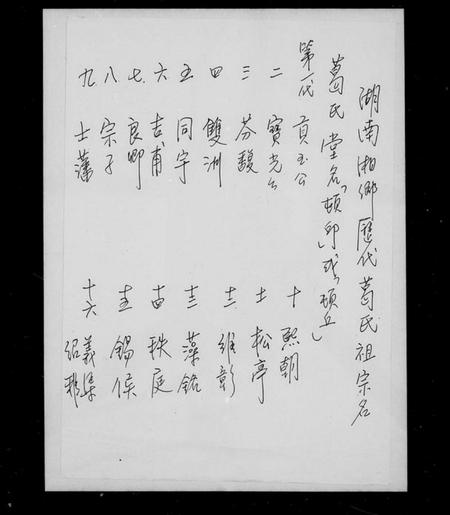 湖南湘鄉歷代葛氏祖宗名
葛氏堂名「頓邱」或「頓丘」
第一代 貢玉公
二 寶光公
三 芬馥
四 雙洲
五 同宇
六 吉甫
七 良卿
八 宗子
九 士藩
十 熙朝
十一 松亭
十二 維彰
十三 藻銘
十四 秩庭
十五 錫侯
十六 義集
紹